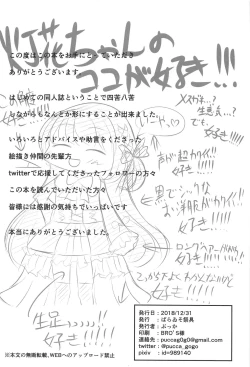 ツェナーさんの
ココが好き!!!
この度はこの本をお手にとっていただき
ありがとうございます。
はじめての同人誌ということで四苦八苦
しながらもなんとか形にすることが出来ました。
いろいろとアドバイスや助言をくださった
絵描き仲間の先輩方
twitterで応援してくださったフォロワーの方々
この本を読んでいただいた方々
皆様には感謝の気持ちでいっぱいです
本当にありがとうございました。
好き!!!
好き!!!
声が超カワイイ!!
好き!!!!
黒でシックな
お洋服がカワイイ!!
好き!!!!
ロングヘアーが
好き!!!
生足
好き!!!!
発行日：2018/12/31
発行：ぱらいそ祭具
発行者：ぷっか
印刷：BRO'S様
連絡先：puccag0g0@gmail.com
twitter：@pucca_gogo
pixiv ：id=989140
※本文の無断転載,WEBへのアップロード禁止